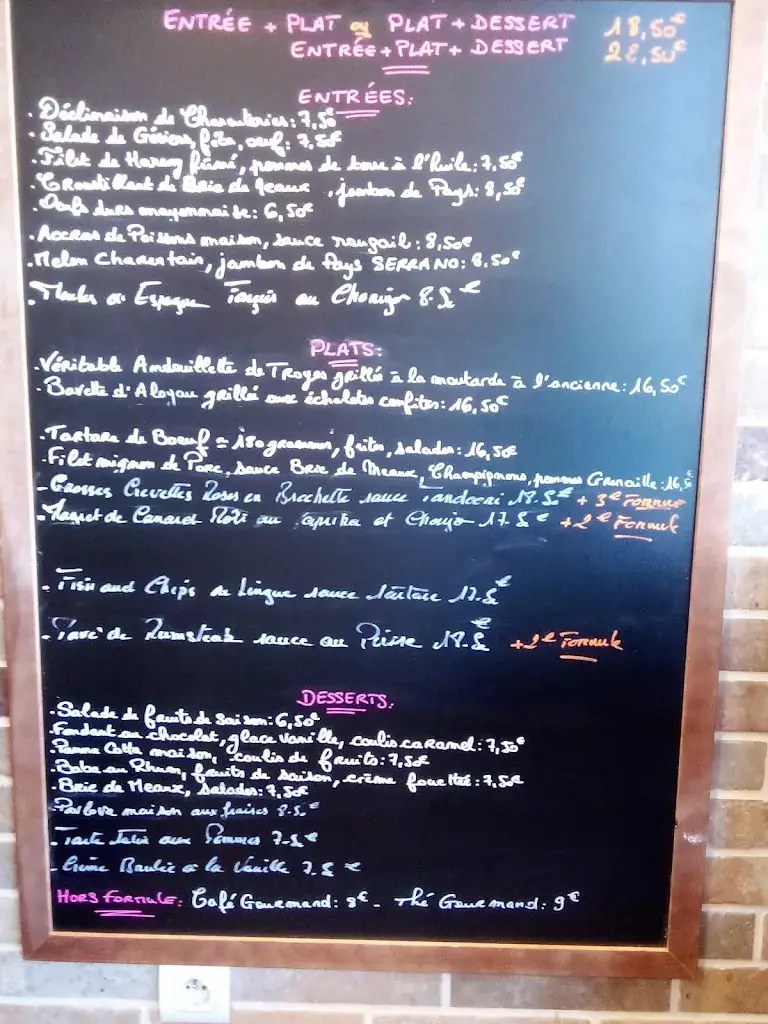 ENTRÉE + PLAT ou PLAT + DESSERT 18,50€
ENTRÉE + PLAT + DESSERT 22,50€
ENTRÉES:
. Déclinaison de Charcuteries: 7,50
. Salade de Gésiers, feta, oeuf: 7,50€
. Filet de Hareng fumé, pommes de terre à l'huile: 7,50€
. Croustillant de Brie de Meaux, jambon de Pays: 8,50€
. Oeufs durs mayonnaise: 6,50€
. Accras de Poissons maison, sauce rougail: 8,50€
. Melon Charentais, jambon de Pays SERRANO: 8,50€
. Moules ou Espagne au Chorizo 8.5€
PLATS:
. Véritable Andouillette de Troyes grillée à la moutarde à l'ancienne: 16,50€
. Bavette d'Aloyau grillée aux échalotes confites: 16,50€
. Tartare de Boeuf = 180 grammes, frites, salades: 16,50€
. Filet mignon de Porc, sauce Brie de Meaux, Champignons, pommes Grenaille: 16,5
- Grosses Crevettes Roses en Brochette sauce Tandoori 18.5€ + 3€ FORMULE
- Magret de Canard Rôti au Paprika et Chorizo 17.5€ + 2€ FORMULE
. Fish and Chips de Lingue sauce tartare 17.5€
. Pavé de Rumsteak sauce au Poivre 18.5€ + 2€ FORMULE
DESSERTS.
. Salade de fruits de Saison: 6,50€
. Fondant au chocolat, glace vanille, coulis caramel: 7,50€
. Panna Cotta maison, coulis de fruits: 7,50€
. Baba au Rhum, fruits de saison, crème fouettée: 7,50€
. Brie de Meaux, Salades: 7,50€
. Pavlova maison aux fraises 8.5€
. Tarte Tatin aux Pommes 7.5€
. Crème Brulée à la Vanille 7.5€
HORS FORMULE: Café Gourmand: 8€ - Thé Gourmand: 9€